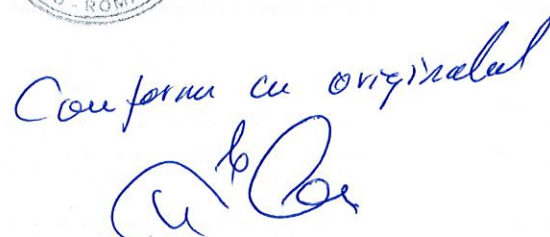 ROMA
Conform cu originalul